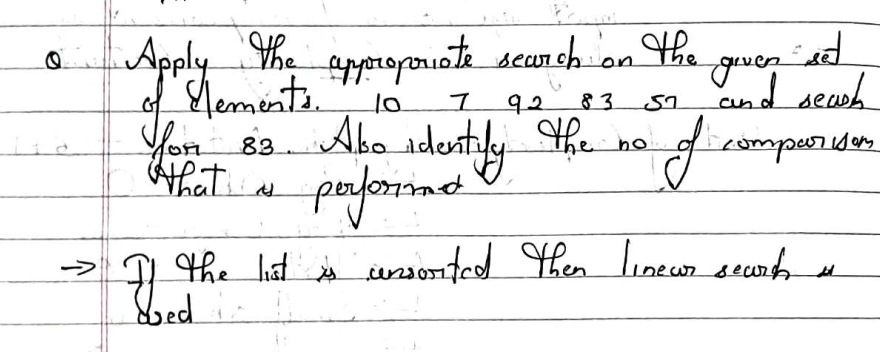 Q Apply the appropriate search on the given set
of Elements. 10 7 92 83 57 and seach
for 83. Also identify the no of comparison
that is performed
→ If the list is unsorted then linear search is
used